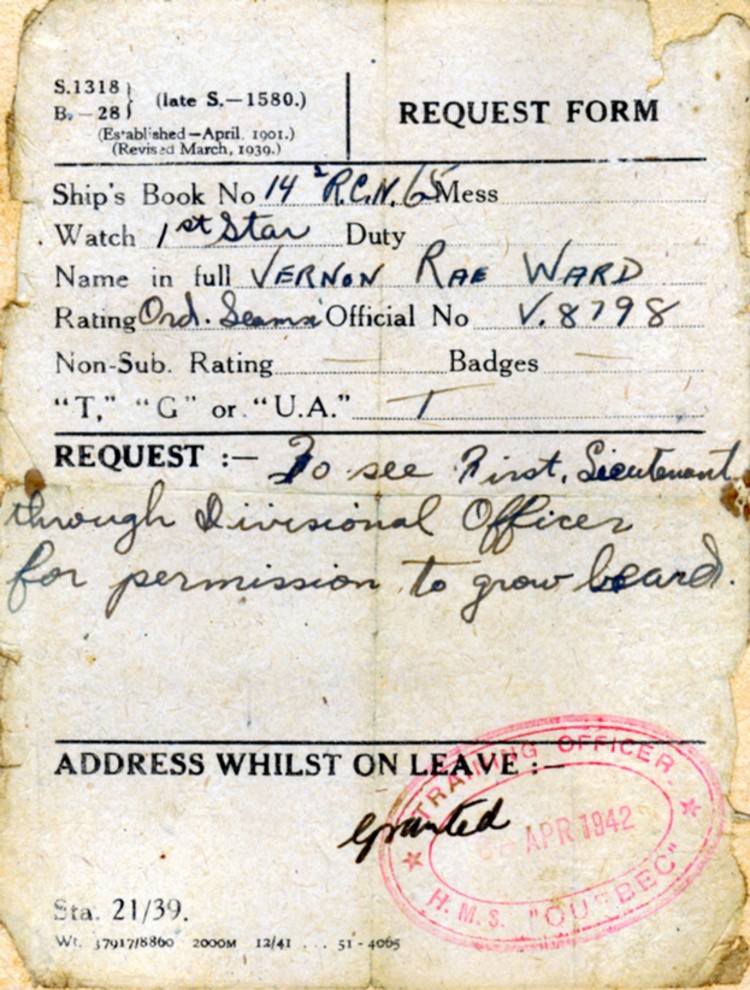 S.1318 }
B.—28 } (late S.—1580.)
(Established—April, 1901.)
(Revised March, 1939.)
REQUEST FORM
Ship's Book No 14² R.C.N. 65 Mess
Watch 1st Star Duty
Name in full VERNON RAE WARD
Rating Ord. Seaman Official No V.8798
Non-Sub. Rating — Badges —
"T," "G" or "U.A." T
REQUEST :— To see First. Lieutenant
through Divisional Officer
for permission to grow beard.
ADDRESS WHILST ON LEAVE :—
granted
TRAINING OFFICER
APR 1942
H.M.S. "QUEBEC"
Sta. 21/39.
Wt. 37917/8860 2000M 12/41 ... 51-4065